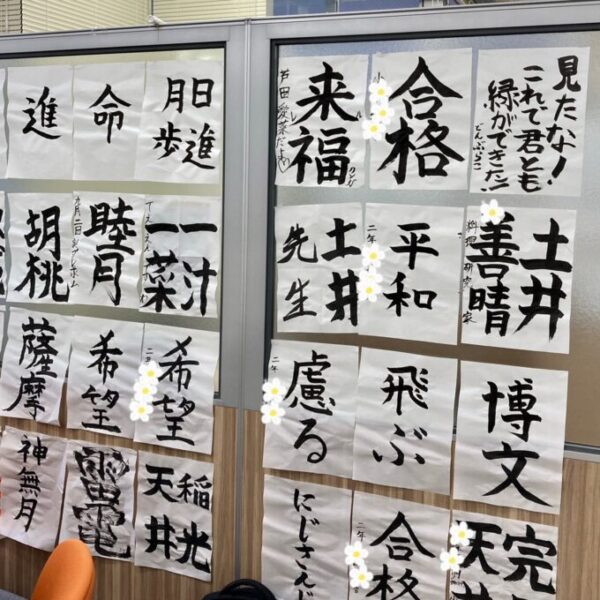 見たな!
これで君とも
縁ができた!
どんぶらこ
合格
小
来福
芦田愛菜だよ
土井
善晴
料理研究家
平和
二年
土井
先生
博文
飛ぶ
慮る
二年
完
天井
合格
二年
にじさんじ
日進
月歩
命
進
一汁
一菜
睦月
胡桃
希望
希望
薩摩
稲光
天井
神無月